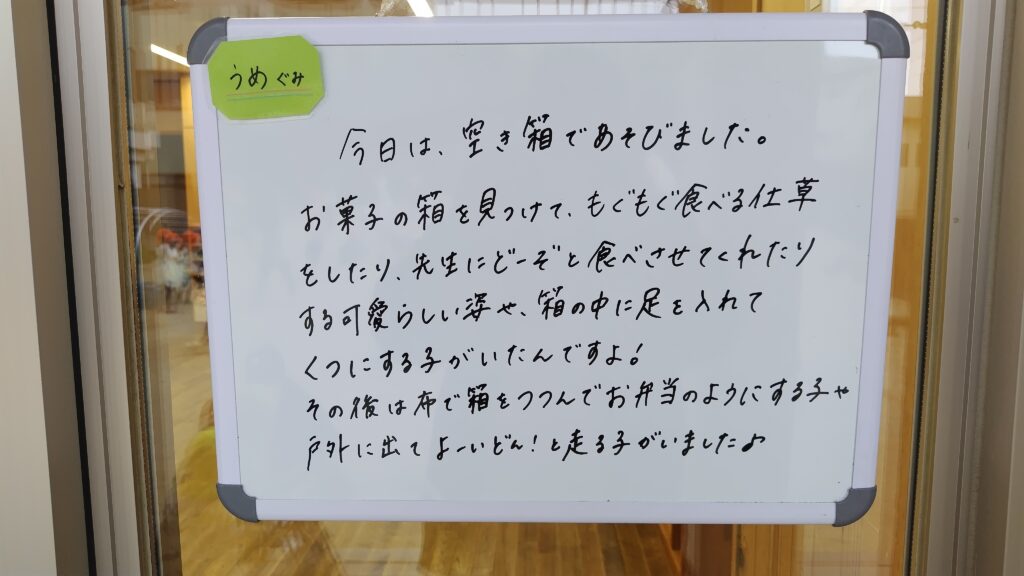 うめぐみ
今日は、空き箱であそびました。
お菓子の箱を見つけて、もぐもぐ食べる仕草
をしたり、先生にどーぞと食べさせてくれたり
する可愛らしい姿や、箱の中に足を入れて
くつにする子がいたんですよ!
その後は布で箱をつつんでお弁当のようにする子や
戸外に出てよーいどん!と走る子がいました♪